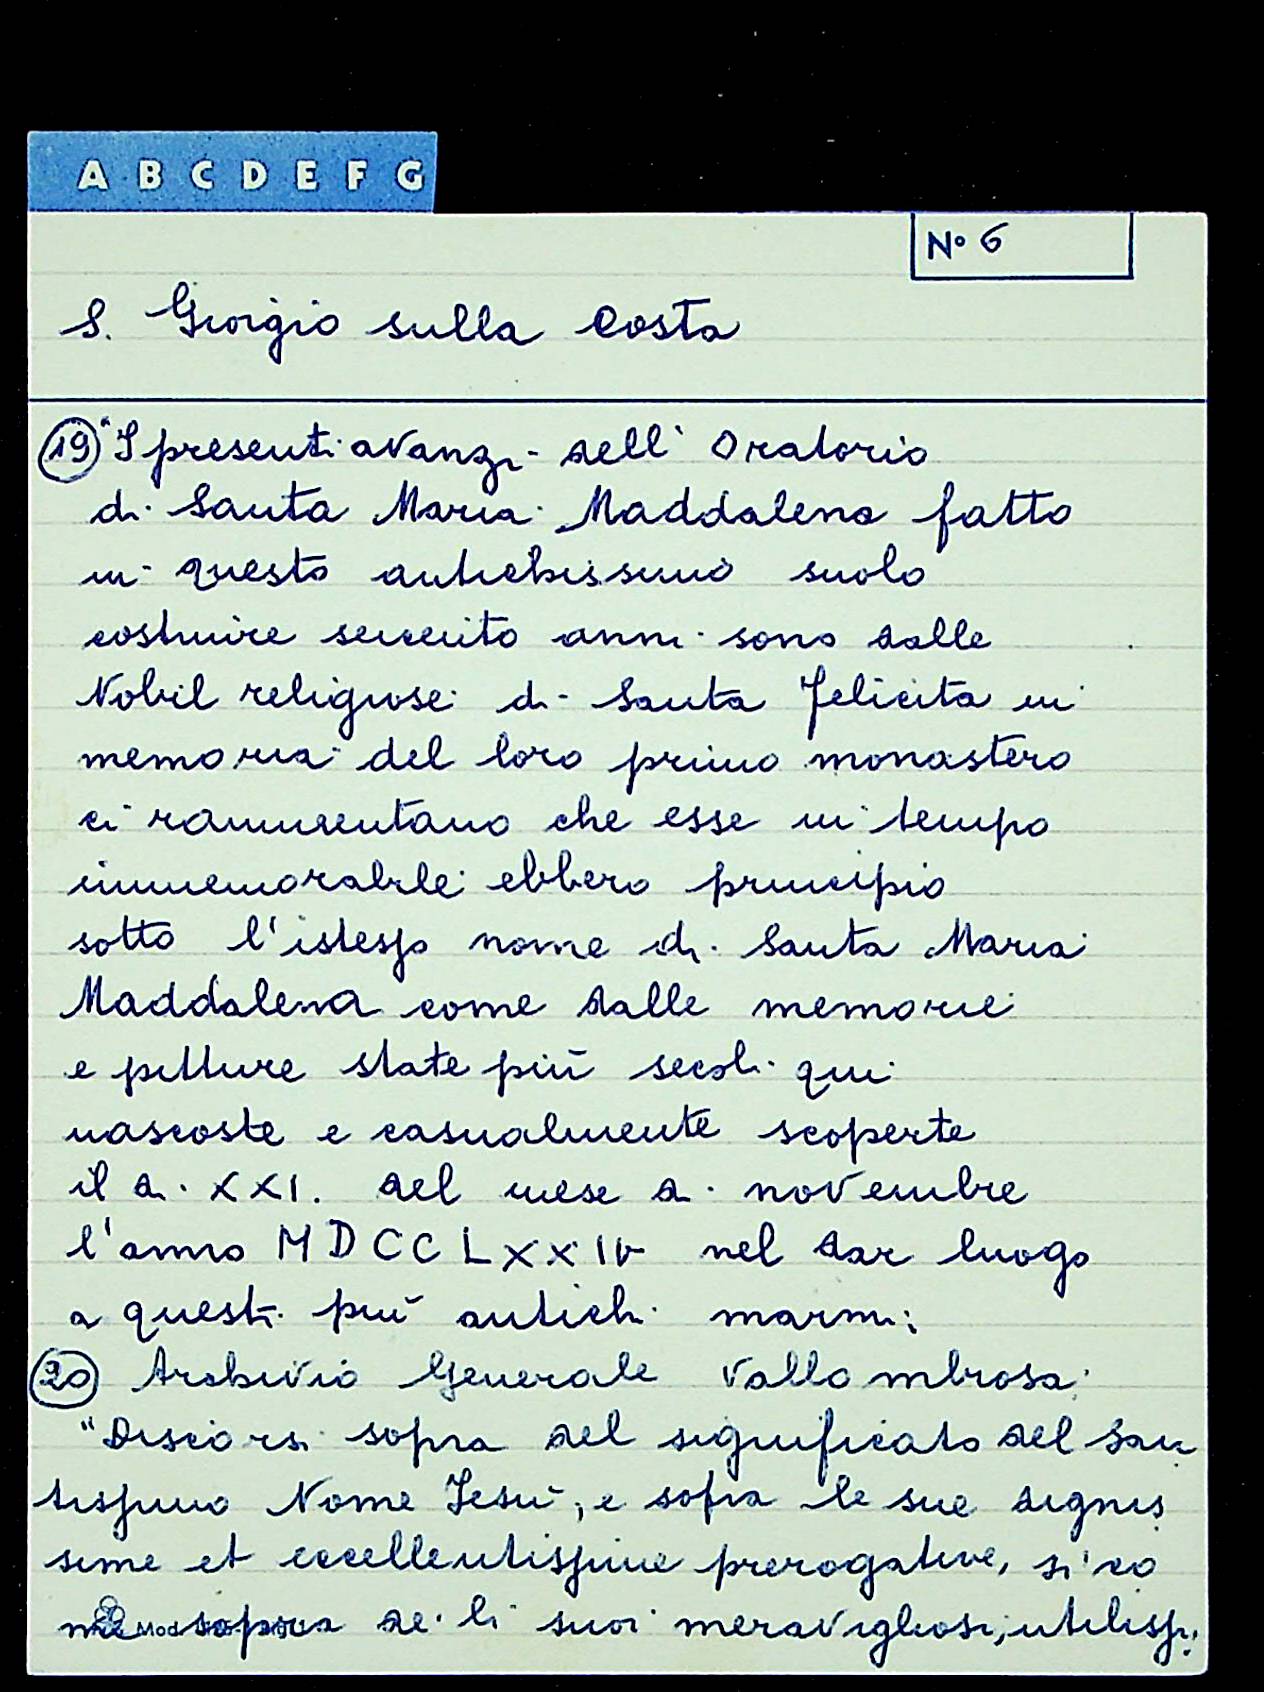 A B C D E F G
N° 6
S. Giorgio sulla Costa
19 "I presenti avanzi dell' Oratorio
di Santa Maria Maddalena fatto
in questo antichissimo suolo
costruire seicento anni sono dalle
Nobil religiose di Santa Felicita in
memoria del loro primo monastero
ci rammentano che esse in tempo
immemorabile ebbero principio
sotto l'istesso nome di Santa Maria
Maddalena come dalle memorie
e pitture state più secoli qui
nascoste e casualmente scoperte
il dì XXI. del mese di novembre
l'anno MDCCLXXIV nel dar luogo
a questi più antichi marmi;
20 Archivio Generale Vallombrosa:
"Discorsi sopra del significato del San
tissimo Nome Jesù, e sopra le sue dignis
sime et eccellentissime prerogative, sì co
me sopra de li suoi meravigliosi, utiliss.
Mod.